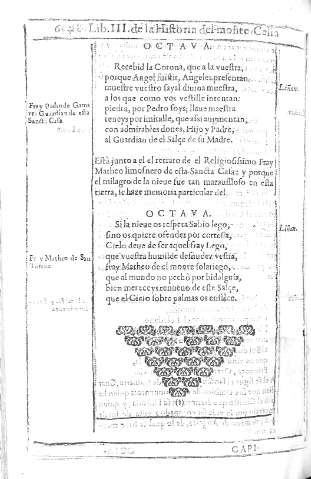 Lib. III. de la Historia del monte Celia
OCTAVA.
Recebid la Corona, que a la vuestra,
porque Angel fuistes, Angeles presentan,
muestre vuestro sayal diuina muestra,
a los que como vos vestille intentan:
piedra, por Pedro soys;
y imitalle, que assi aumentan,
con admirables dones, Hijo y Padre,
al Guardian de el Salçe de su Madre.
Liñan.
Fray Pedro de
Guardian de esta
Sancta Casa
Està junto a el el retrato de el Religiosissimo Fray
Matheo limosnero de esta Sancta Casa: y porque
el milagro de la nieue fue tan marauilloso en esta
tierra, se haze memoria particular del.
OCTAVA.
Si la nieue os respeta Sabio lego,
sino os quiere ofender por cortesia,
Cielo deue de ser aquel fray Lego,
que vuestra humilde
fray Matheo de el monte solariego,
que al mundo no pechò por hidalguia,
bien mereceys renueuo de este Salçe,
que el Cielo sobre palmas os ensalce.
Liñan.
Fray Matheo de San
(?)
CAPI-